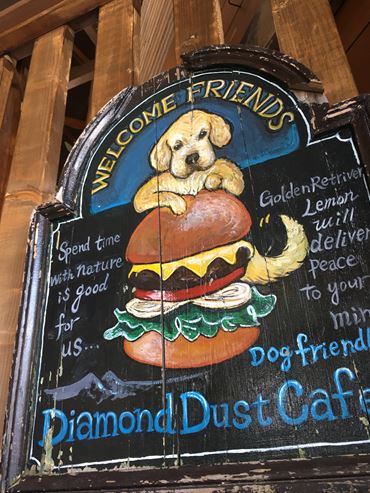 WELCOME FRIENDS
Spend time
with nature
is good
for
us...
Golden Retriever
Lemon
will
deliver
Peace
to your
min
Dog friendl
Diamond Dust Cafe